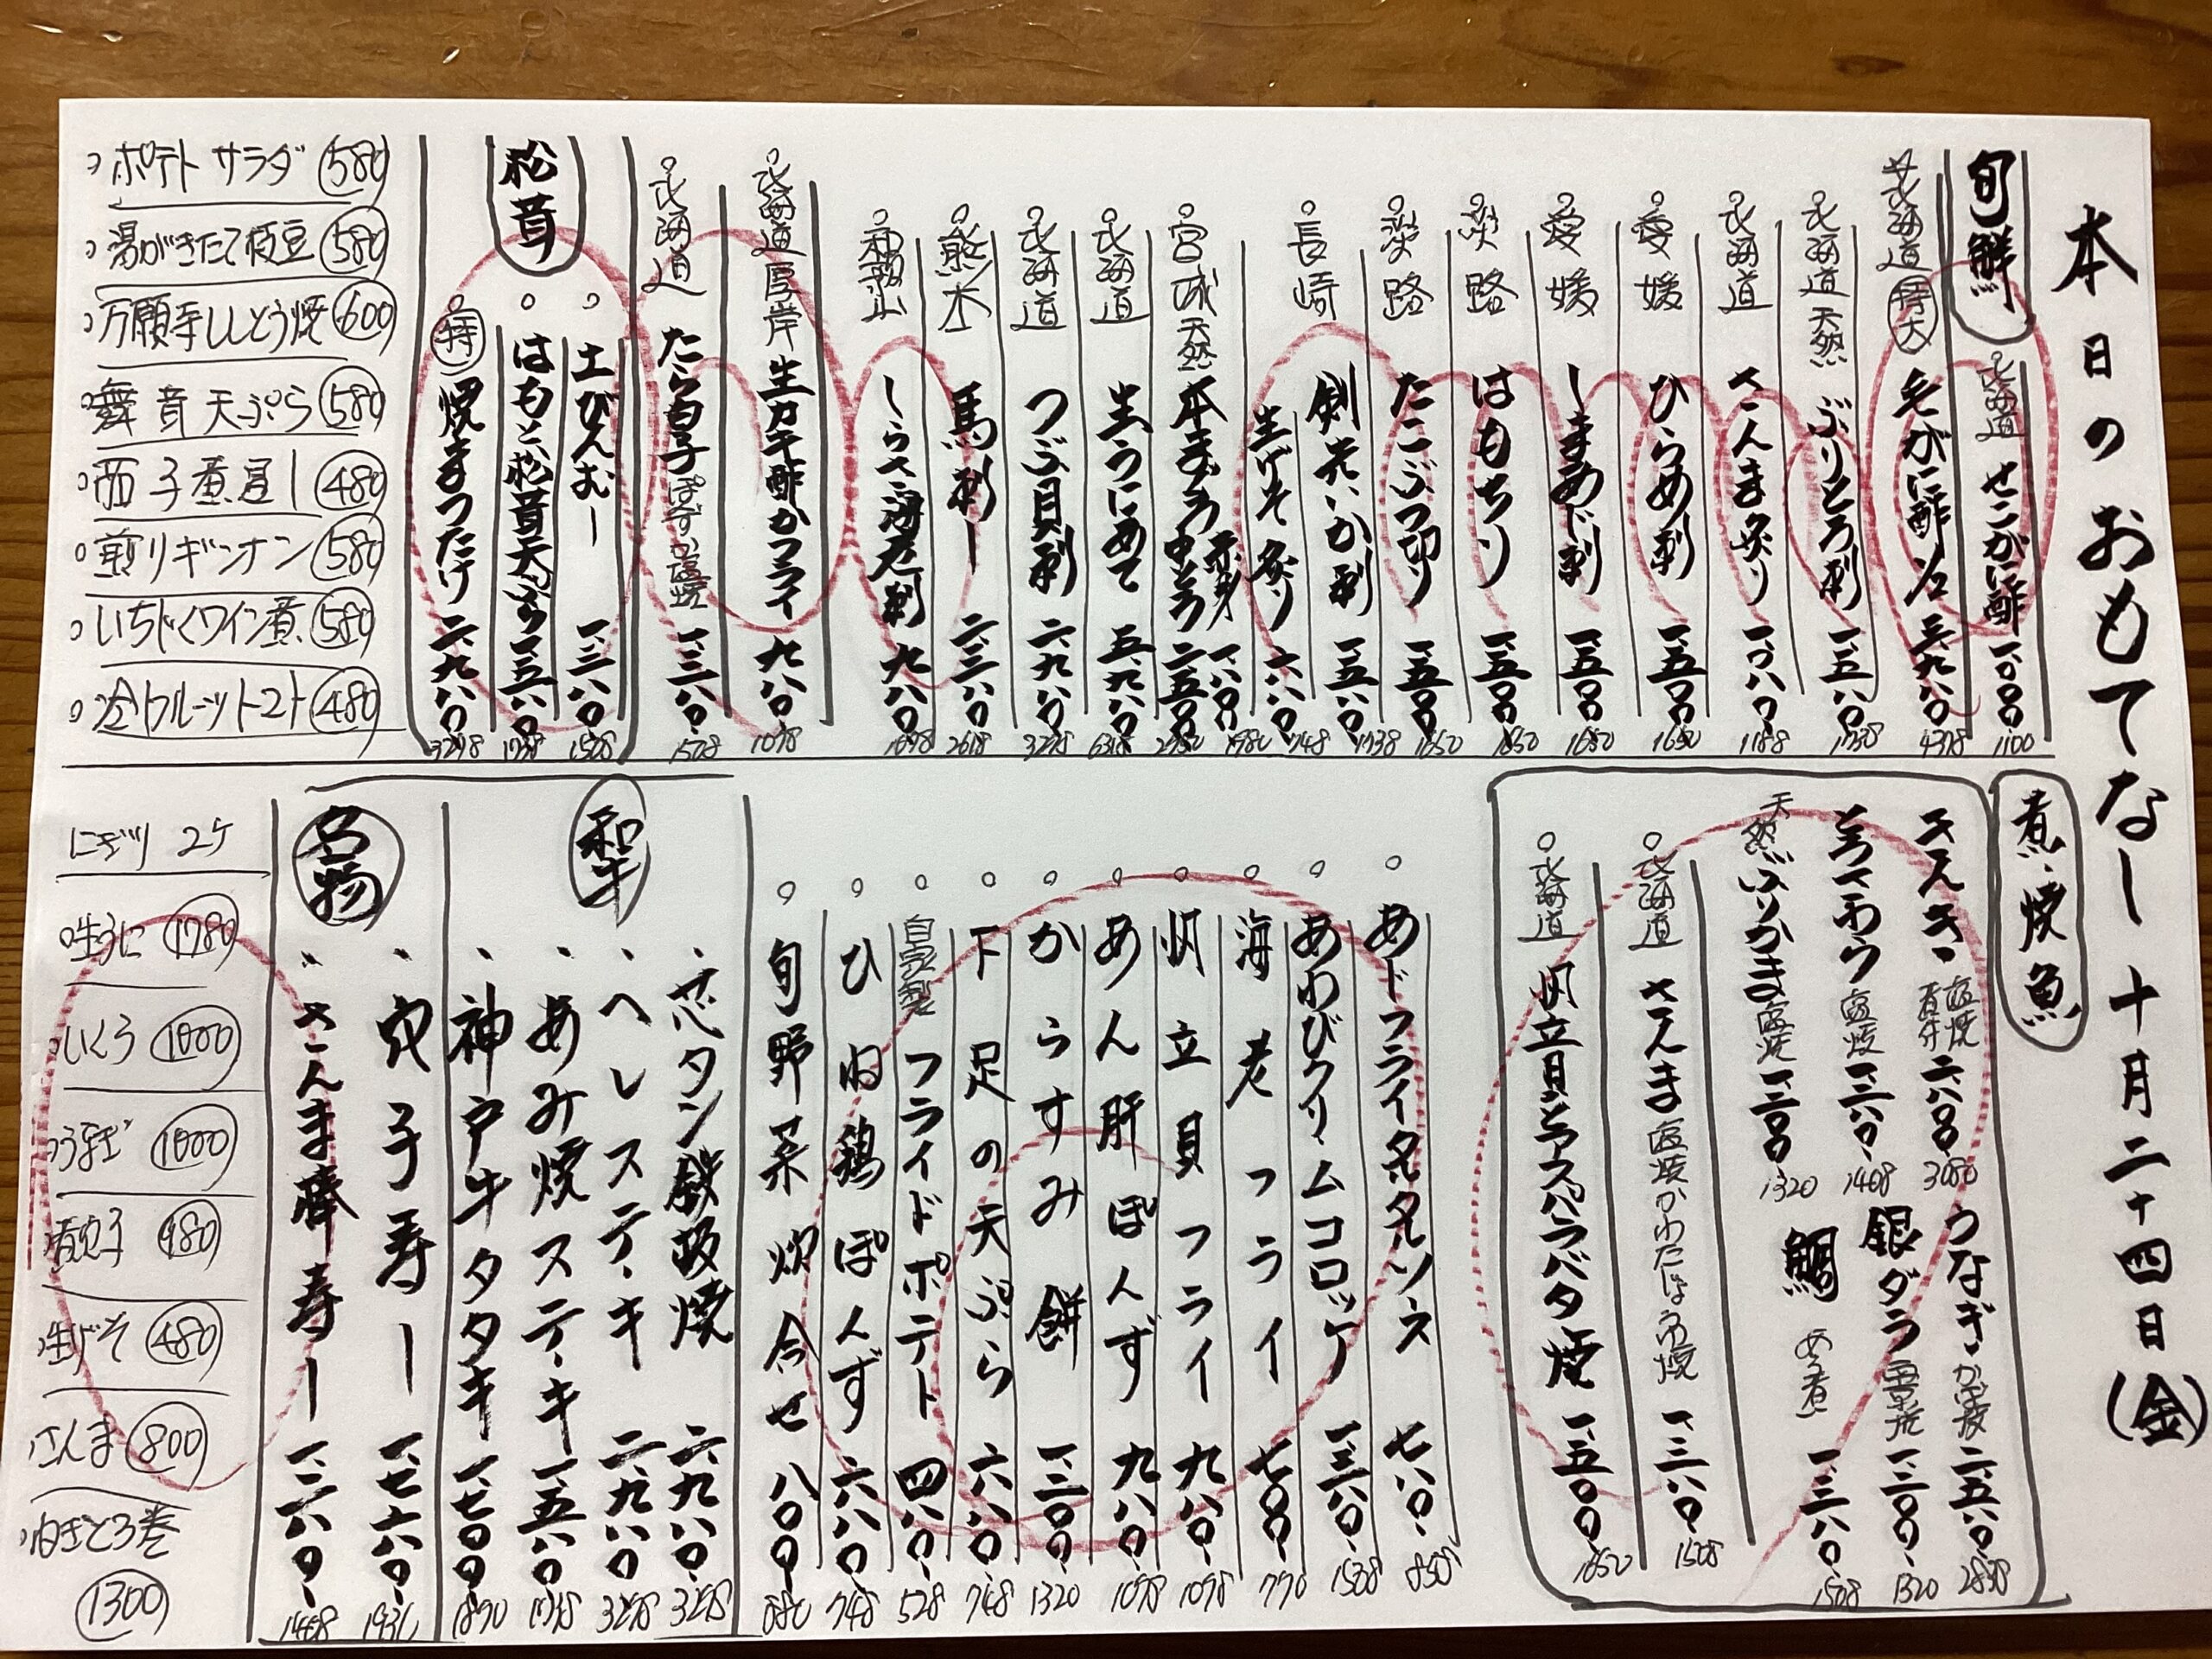 本日のおもてなし 十月二十四日(金)
旬鮮
北海道 せこがに酢 一、〇〇〇 1100
北海道 特大 毛がに酢 三、九八〇 4378
北海道 天然 ぶりとろ刺 一、五八〇 1738
北海道 さんま炙り 一、〇八〇 1188
愛媛 ひらめ刺 一、五〇〇 1650
愛媛 しまあじ刺 一、五〇〇
淡路 はもちり 一、五〇〇 1650
淡路 たこぶつ切り 一、五〇〇 1650
長崎 剣先いか刺 一、五八〇 1738
生げそ炙り 六八〇 748
宮城 天然 本まぐろ 赤身 一、八〇〇 1980
中とろ 二、五〇〇 2750
北海道 生うにあて 五、九八〇
北海道 つぶ貝刺 二、九八〇 3278
熊本 馬刺し 二、三八〇 2618
和歌山 しらさ海老刺 九八〇 1078
北海道厚岸 生カキ酢かフライ 九八〇 1078
北海道 たら白子 ぽんずか塩焼 一、三八〇 1508
松茸
土びんむし 一、三八〇 1508
はもと松茸天ぷら 一、五八〇 1738
特 焼まつたけ 二、九八〇 3278
ポテトサラダ 580
湯がきたて枝豆 580
万願寺ししとう焼 600
舞茸天ぷら 580
茄子煮浸し 480
煎りギンナン 580
いちじくワイン煮 580
冷フルーツトマト 480
煮・焼魚
塩焼 煮付 二、八〇〇 3080
とろさわら 塩焼 一、二八〇 1408
天然ぶりかま塩焼 一、二〇〇 1320
うなぎ かば焼 二、五八〇 2838
銀ダラ 西京焼 一、二〇〇 1320
鯛 あら煮 一、三八〇 1508
北海道 さんま 塩焼かわたほうろ焼 一、三八〇 1508
北海道 帆立貝とアスパラバター焼 一、五〇〇 1650
あじフライタルタルソース 七八〇 858
あわびクリームコロッケ 一、三八〇 1508
海老フライ 七〇〇 770
帆立貝フライ 九八〇 1078
あん肝ぽんず 九八〇 1078
からすみ餅 一、二〇〇 1320
下足の天ぷら 六八〇 748
自家製 フライドポテト 四八〇 528
ひね鶏ぽんず 六八〇 748
旬野菜炊合せ 八〇〇 880
和牛
芯タン鉄板焼 二、九八〇 3278
ヘレステーキ 二、九八〇 3278
あみ焼ステーキ 一、五八〇 1738
神戸牛タタキ 一、七〇〇 1870
名物
穴子寿し 一、七六〇 1936
さんま棒寿し 一、二八〇 1408
にぎり 2ケ
生うに 1780
いくら 1000
うなぎ 1000
煮穴子 480
生げそ 480
さんま 800
ねぎとろ巻
1300